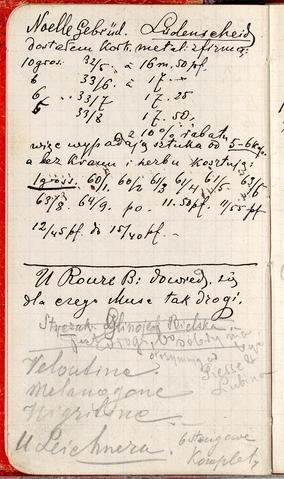 Noelle Gebrüd. Lüdenscheid
dostałem kort. metal. z firmą:
10 gros. 32/5. à 16 m. 50 pf.
6 33/6 à 17.—
6 .. 33/7 17. 25
5 33/8 17. 50.
à 10% rabatu
więc wypadają sztuka od 5-6 kop.
a bez kranu i herbu kosztują:
1 gross. 60/1. 60/2 61/3 61/4 61/5 63/5
63/8 64/9. po. 11.50 pf. 11/55 pf
12/45 pf. do 15/40 pf. —
U Roure B: dowied. się
dla czego Musc tak drogi.
Gliniojeck Bielska
jest drogi bo
otrzymują od
Liesse
Lubina
Veloutine
Melanogene
Nigritine
U Leichnera. 6 stangowe
Komplety